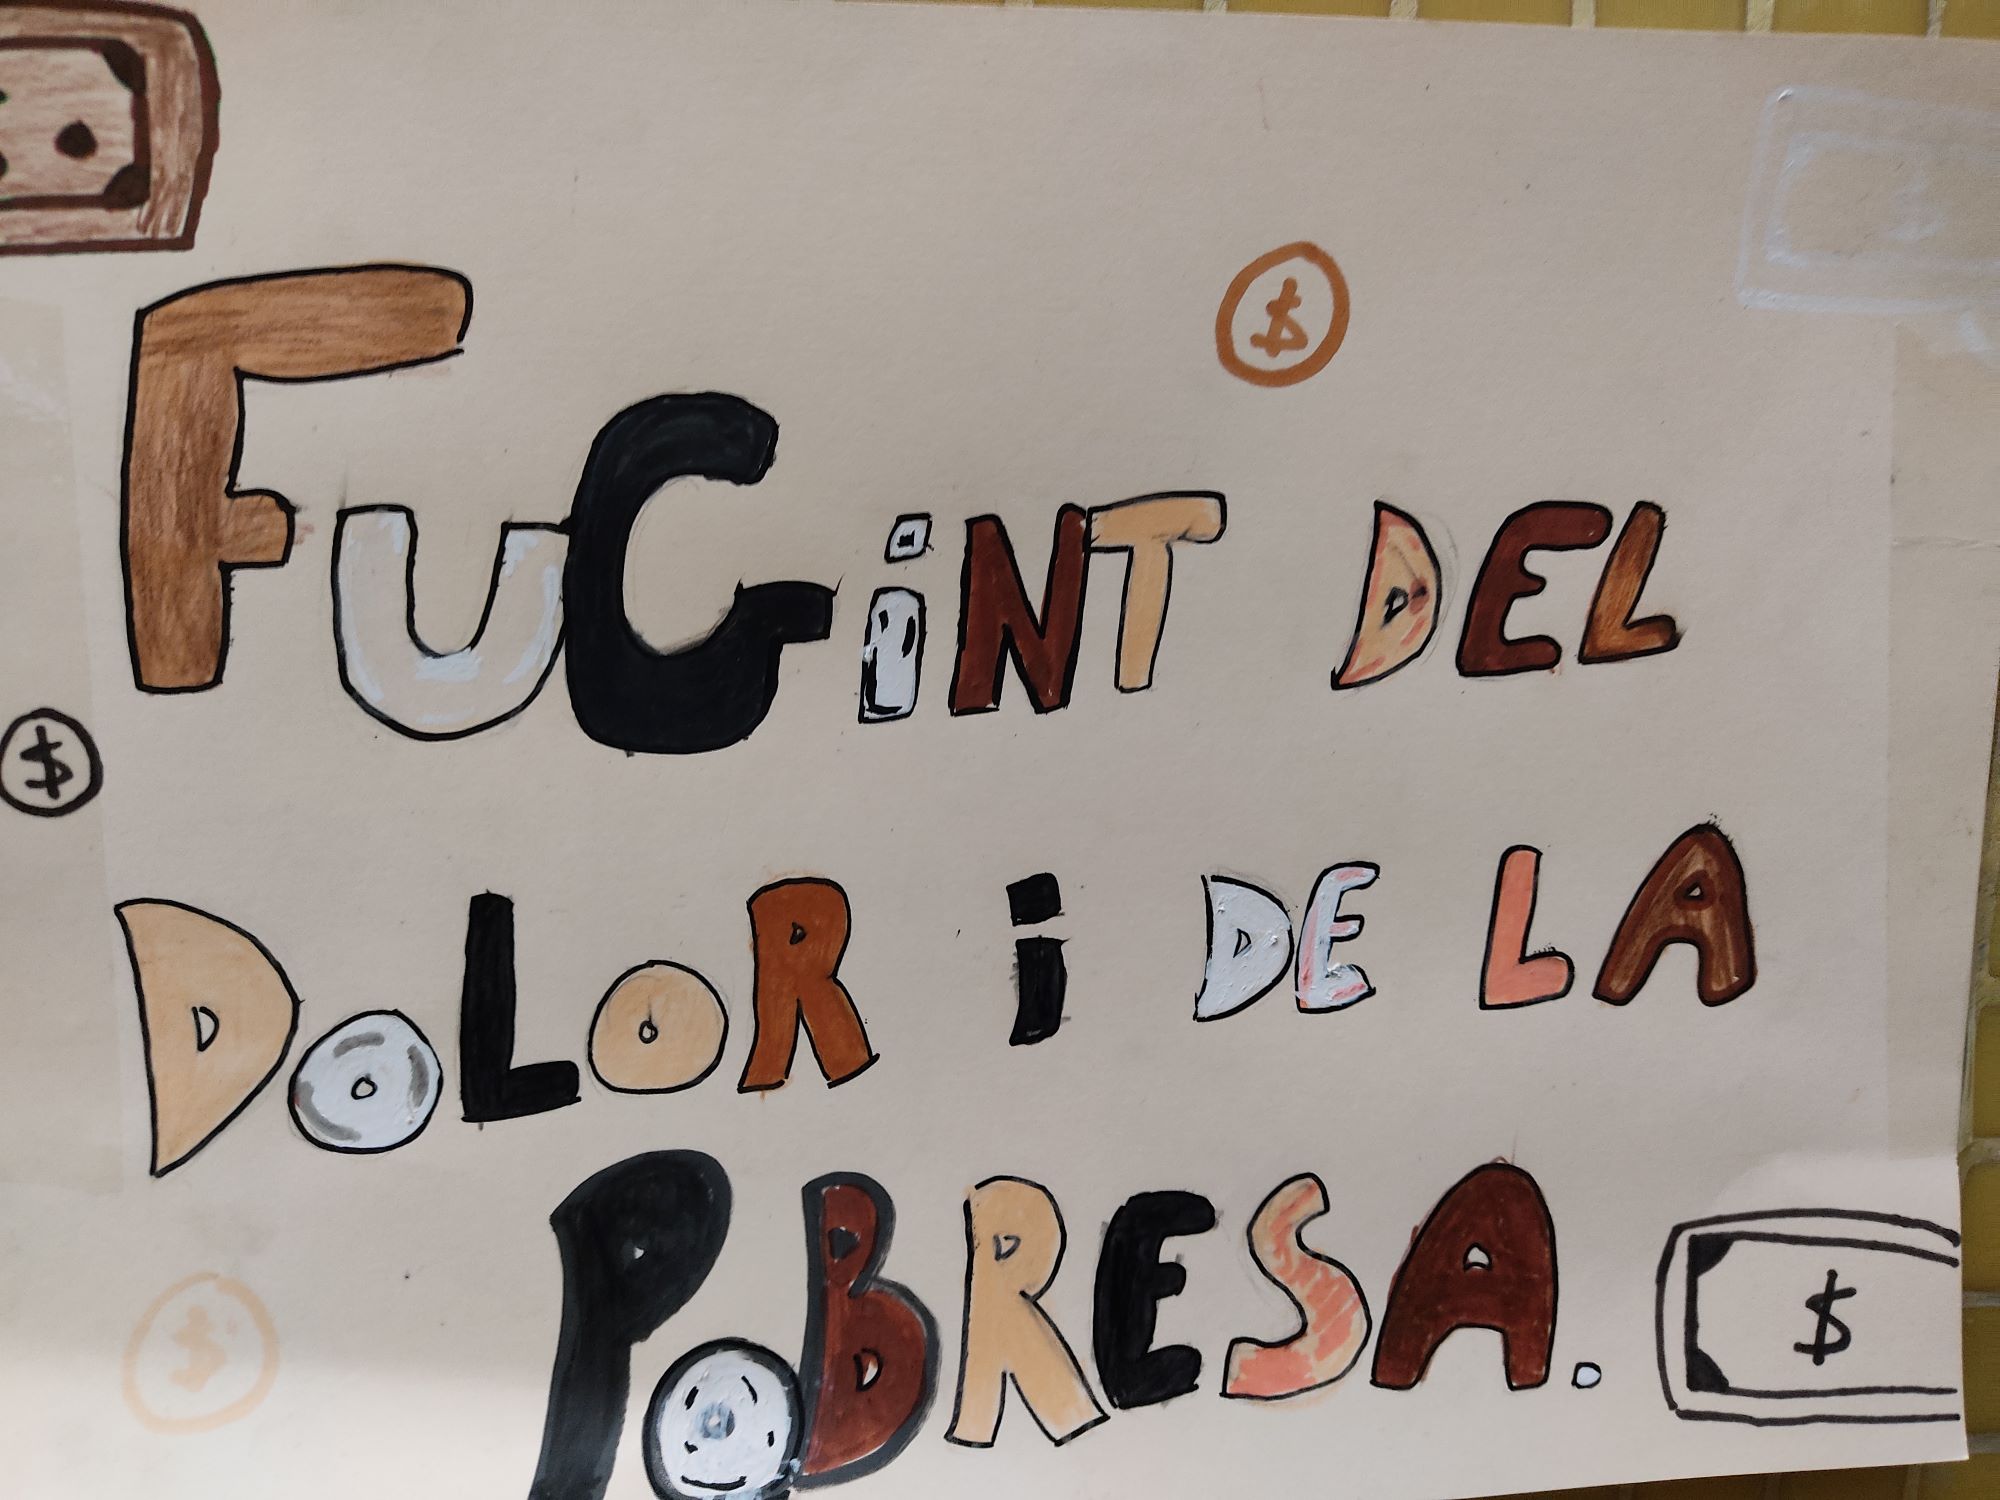 FUGiNT DEL
DOLOR i DE LA
POBRESA.
$
$
$
$